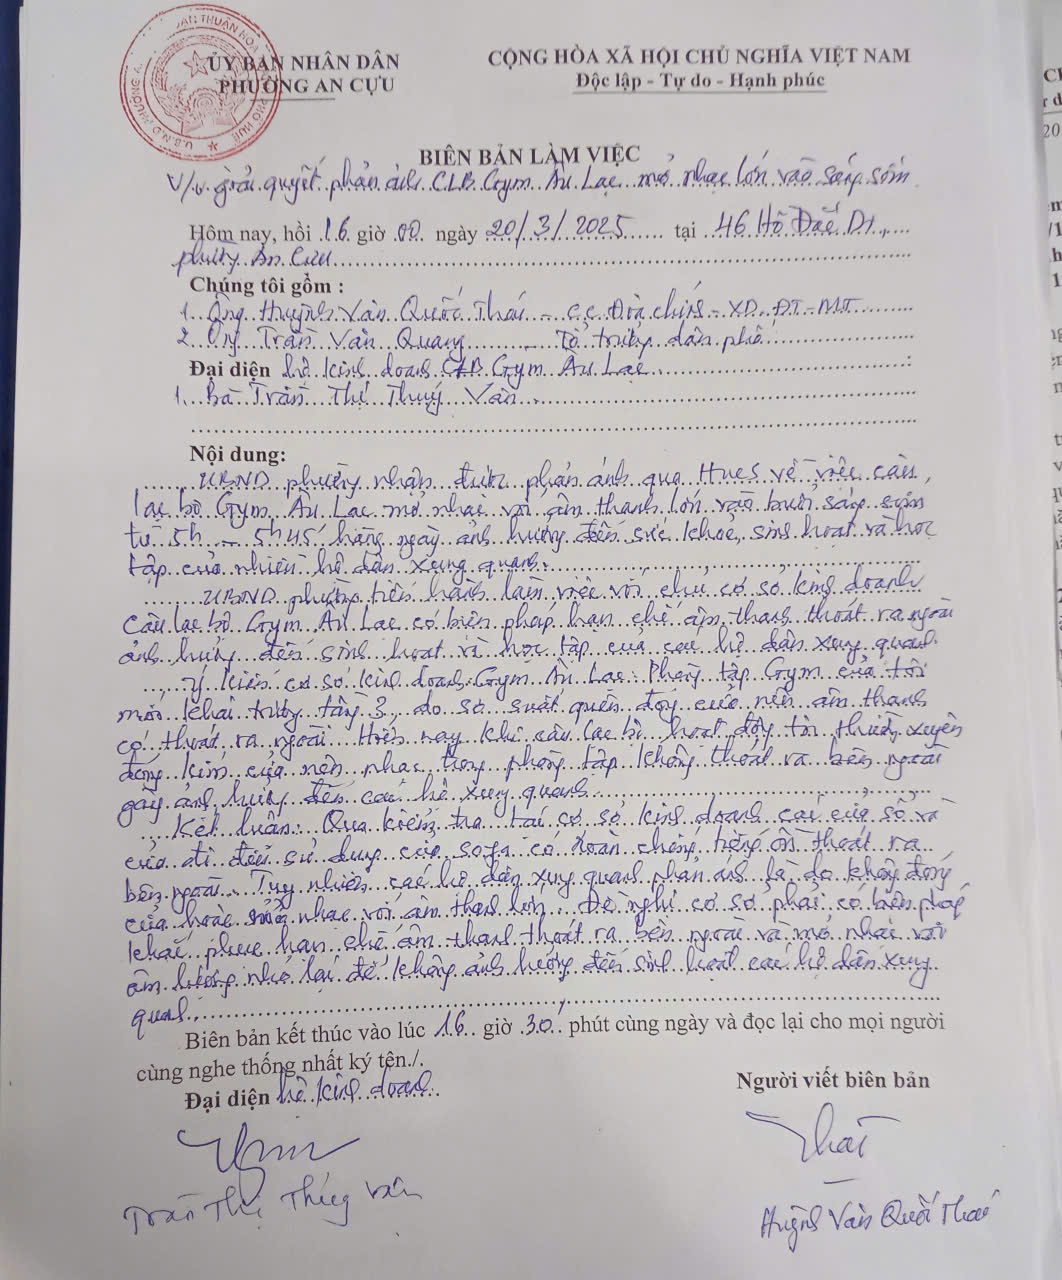 ỦY BAN NHÂN DÂN
PHƯỜNG AN CỰU
CỘNG HÒA XÃ HỘI CHỦ NGHĨA VIỆT NAM
Độc lập - Tự do - Hạnh phúc
BIÊN BẢN LÀM VIỆC
V/v giải quyết phản ánh CLB Gym Âu Lạc mở nhạc lớn vào sáng sớm
Hôm nay, hồi 16 giờ 00 ngày 20/3/2025 tại 46 Hồ Đắc Di,
phường An Cựu
Chúng tôi gồm :
1. Ông Huỳnh Văn Quốc Thái - CC Địa chính - XD, ĐT-MT
2. Ông Trần Văn Quang Tổ trưởng dân phố
Đại diện hộ kinh doanh CLB Gym Âu Lạc :
1. Bà Trần Thị Thúy Vân
Nội dung:
UBND phường nhận được phản ánh qua HueS về việc câu
lạc bộ Gym Âu Lạc mở nhạc với âm thanh lớn vào buổi sáng sớm
từ 5h - 5h45 hằng ngày ảnh hưởng đến sức khoẻ, sinh hoạt và học
tập của nhiều hộ dân xung quanh.
UBND phường tiến hành làm việc với chủ cơ sở kinh doanh
Câu lạc bộ Gym Âu Lạc có biện pháp hạn chế âm thanh thoát ra ngoài
ảnh hưởng đến sinh hoạt và học tập của các hộ dân xung quanh.
Ý kiến cơ sở kinh doanh Gym Âu Lạc: Phòng tập Gym của tôi
mới khai trương tầng 3, do sơ suất quên đóng cửa nên âm thanh
có thoát ra ngoài. Hiện nay khi câu lạc bộ hoạt động tôi thường xuyên
đóng kín cửa nên nhạc trong phòng tập không thoát ra bên ngoài
gây ảnh hưởng đến các hộ xung quanh
Kết luận: Qua kiểm tra tại cơ sở kinh doanh các cửa sổ và
cửa đi đều sử dụng cửa có chống tiếng ồn thoát ra
bên ngoài. Tuy nhiên các hộ dân xung quanh phản ánh là do không đóng
cửa hoặc mở nhạc với âm thanh lớn. Đề nghị cơ sở phải có biện pháp
khắc phục hạn chế âm thanh thoát ra bên ngoài và mở nhạc với
âm lượng nhỏ lại để không ảnh hưởng đến sinh hoạt các hộ dân xung
quanh.
Biên bản kết thúc vào lúc 16 giờ 30 phút cùng ngày và đọc lại cho mọi người
cùng nghe thống nhất ký tên./.
Đại diện hộ kinh doanh
Người viết biên bản
Thái
Trần Thị Thúy Vân
Huỳnh Văn Quốc Thái